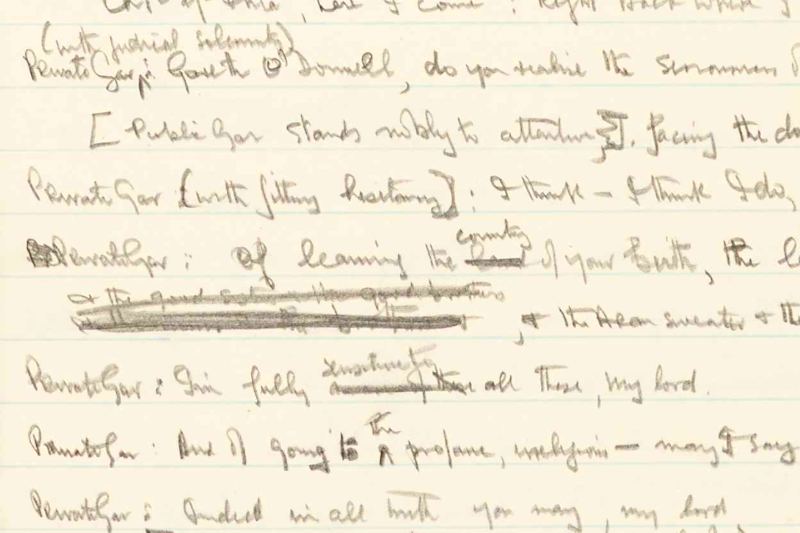 , here I come! Right back where I
(with judicial solemnity)
Private Gar: Gareth O'Donnell, do you realise the seriousness o
[Public Gar stands nobly to attention], facing the do
Private Gar [with fitting hesitancy]: I think – I think I do,
Private Gar: Of leaving the country of your birth, the l
& the good
, & the Aran sweater & the
Private Gar: I'm fully sensitive to all these, my lord.
Private Gar: And of going to the profane, irreligious — may I say
Private Gar: Indeed in all truth you may, my lord